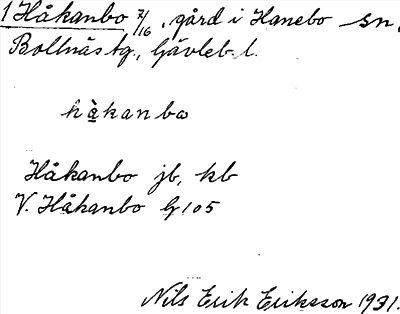 1 Håkanbo 7/16, gård i Hanebo sn,
Bollnäs tg., Gävleb. l.
hàkanbo
Håkanbo jb, kb
V. Håkanbo G 105
Nils Erik Eriksson 1931.